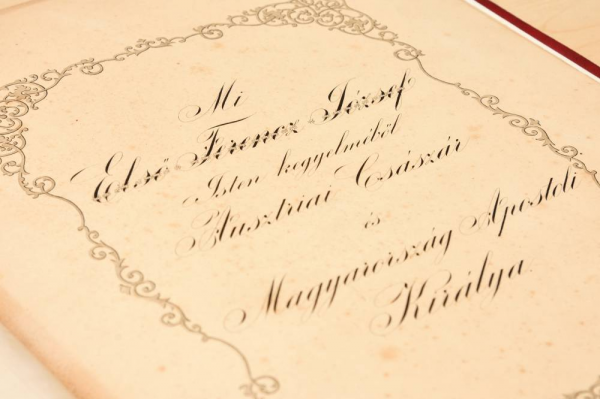 Mi
Első Ferencz József
Isten kegyelmiből
Ausztriai Császár
és
Magyarország Apostoli
Királya